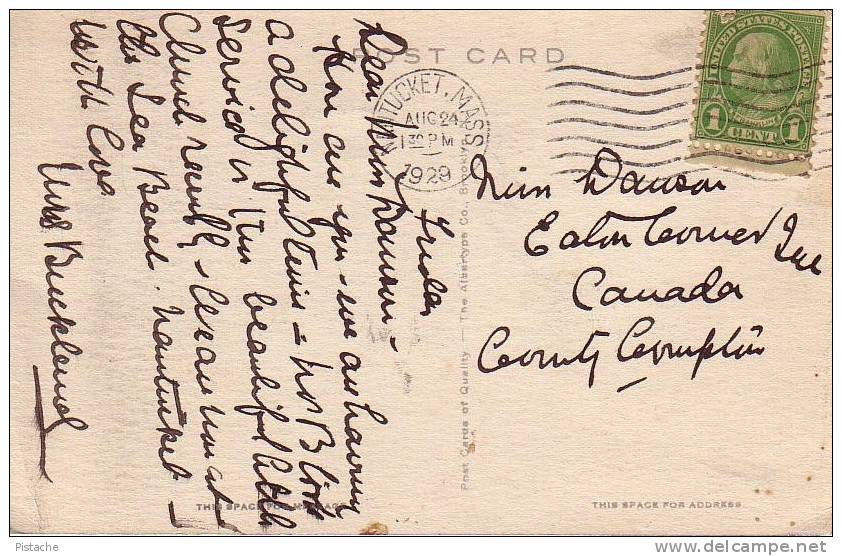 POST CARD
NANTUCKET, MASS
AUG 24
1 30 PM
1929
UNITED STATES POSTAGE
1 CENT 1
Friday
Dear Miss Dawson -
How are you - we are having
a delightful time - Mr B took
service in this beautiful little
Church recently -
the Sea Beach. Nantucket -
with love
Mrs. Buckland
Miss Dawson
Eaton Corner Que
Canada
County Compton
Post Cards of Quality — The Albertype Co., Brooklyn
THIS SPACE FOR MESSAGE
THIS SPACE FOR ADDRESS
Pistache
delcampe.net